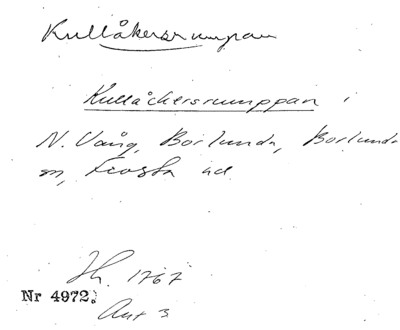 Kullåkersrumpan
Kullåckersrumppan i
N. Vång, Borlunda, Borlunda
sn, Frosta hd
Jh. 1767
Nr 4972.
Akt 3